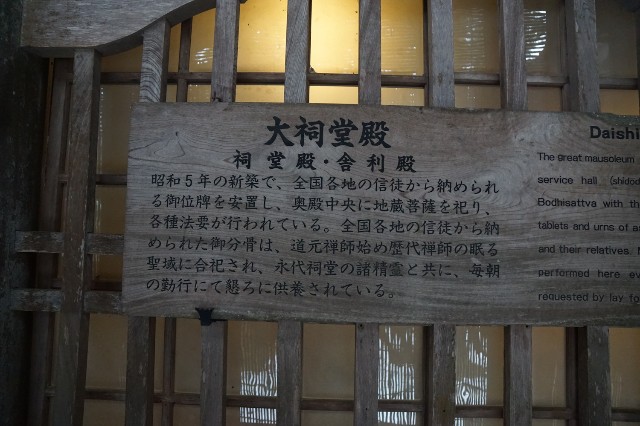 大祠堂殿
祠堂殿・舎利殿
昭和5年の新築で、全国各地の信徒から納められ
る御位牌を安置し、奥殿中央に地蔵菩薩を祀り、
各種法要が行われている。全国各地の信徒から納
められた御分骨は、道元禅師始め歴代禅師の眠る
聖域に合祀され、永代祠堂の諸精霊と共に、毎朝
の勤行にて懇ろに供養されている。
Daishi
The great mausoleum
service hall (shidod
Bodhisattva with th
tablets and urns of a
and their relatives.
performed here ev
requested by lay fo